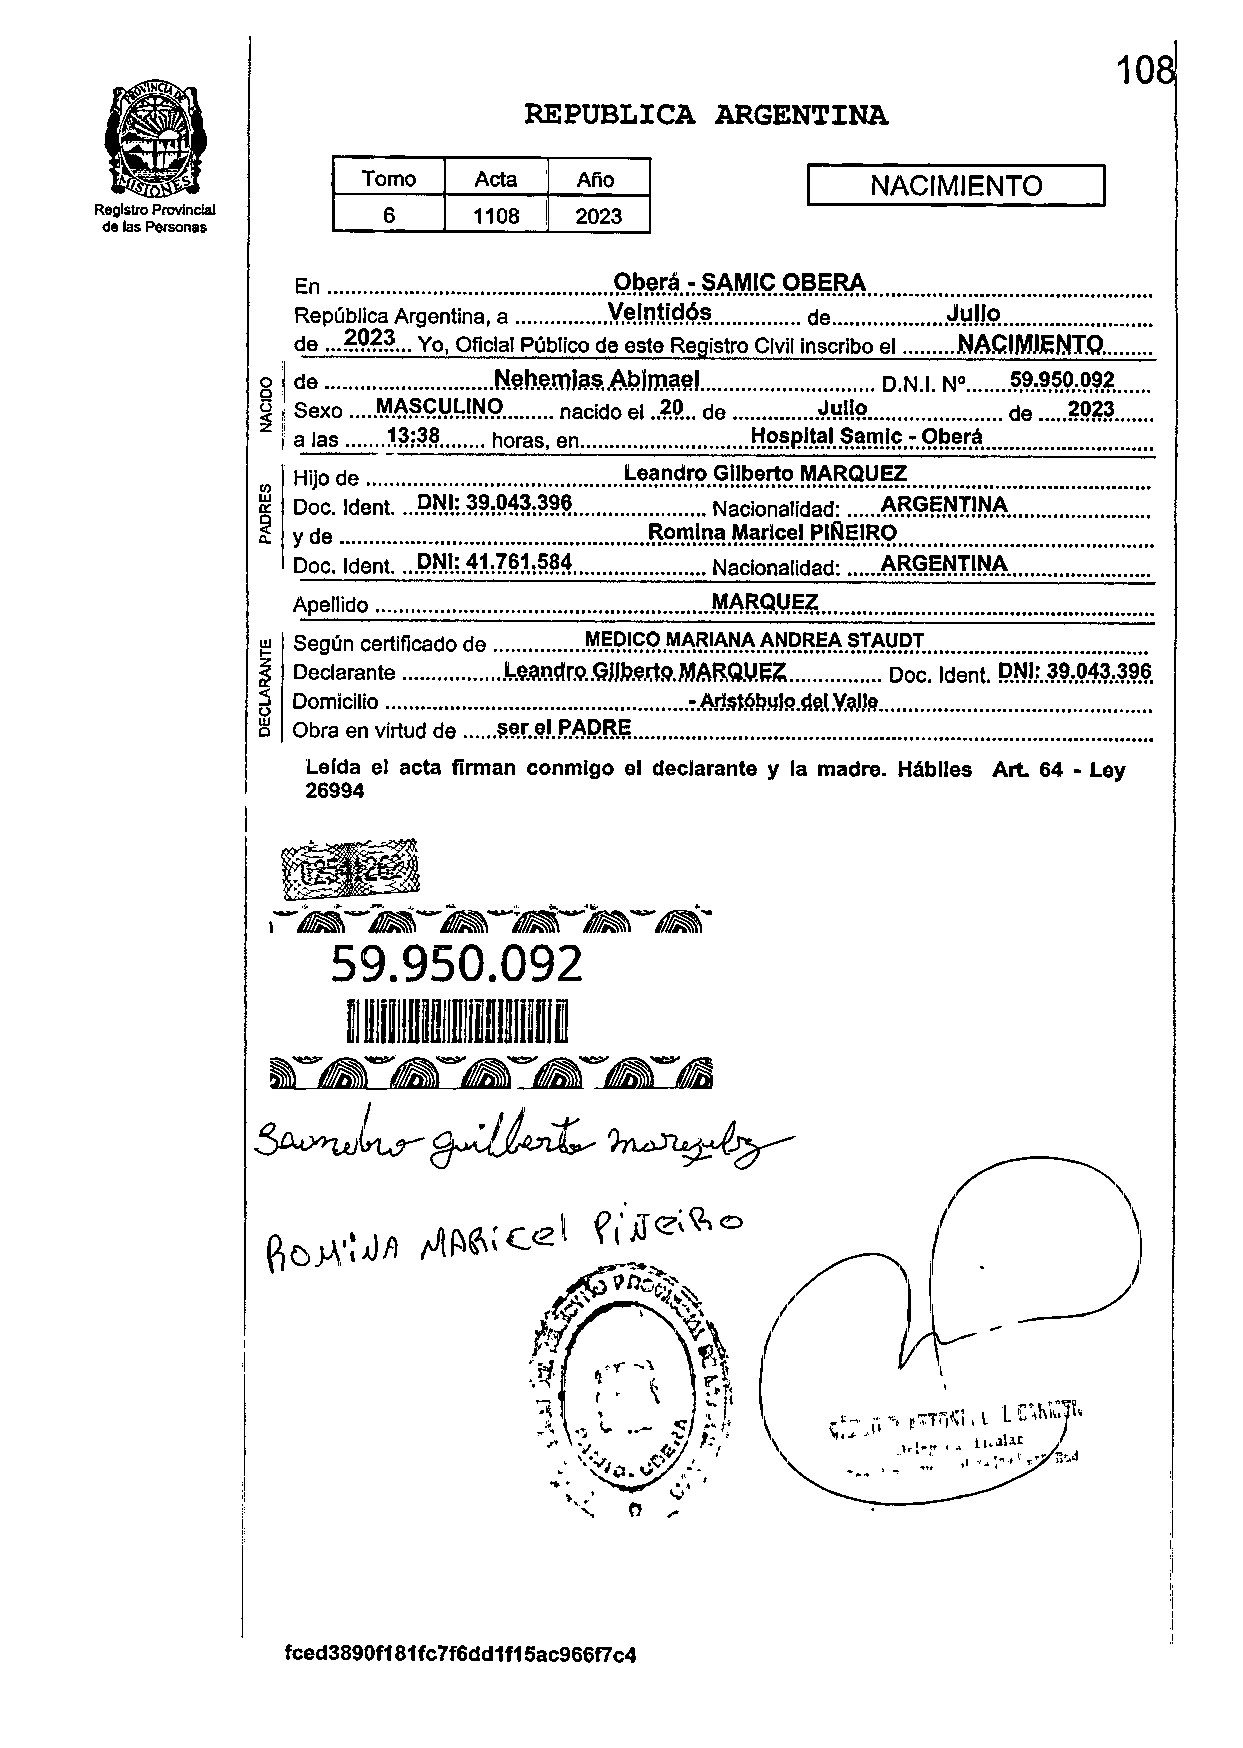 108
PROVINCIA DE
MISIONES
Registro Provincial
de las Personas
REPUBLICA ARGENTINA
Tomo Acta Año
6 1108 2023
NACIMIENTO
En Oberá - SAMIC OBERA
República Argentina, a Veintidós de Julio
de 2023 Yo, Oficial Público de este Registro Civil inscribo el NACIMIENTO
NACIDO
de Nehemias Abimael D.N.I. Nº 59.950.092
Sexo MASCULINO nacido el 20 de Julio de 2023
a las 13:38 horas, en Hospital Samic - Oberá
PADRES
Hijo de Leandro Gilberto MARQUEZ
Doc. Ident. DNI: 39.043.396 Nacionalidad: ARGENTINA
y de Romina Maricel PIÑEIRO
Doc. Ident. DNI: 41.761.584 Nacionalidad: ARGENTINA
Apellido MARQUEZ
DECLARANTE
Según certificado de MEDICO MARIANA ANDREA STAUDT
Declarante Leandro Gilberto MARQUEZ Doc. Ident. DNI: 39.043.396
Domicilio - Aristóbulo del Valle
Obra en virtud de ser el PADRE
Leída el acta firman conmigo el declarante y la madre. Hábiles Art. 64 - Ley
26994
59.950.092
guilberto
ROMINA MARICEL PIÑEIRO
OBERA
fced3890f181fc7f6dd1f15ac966f7c4